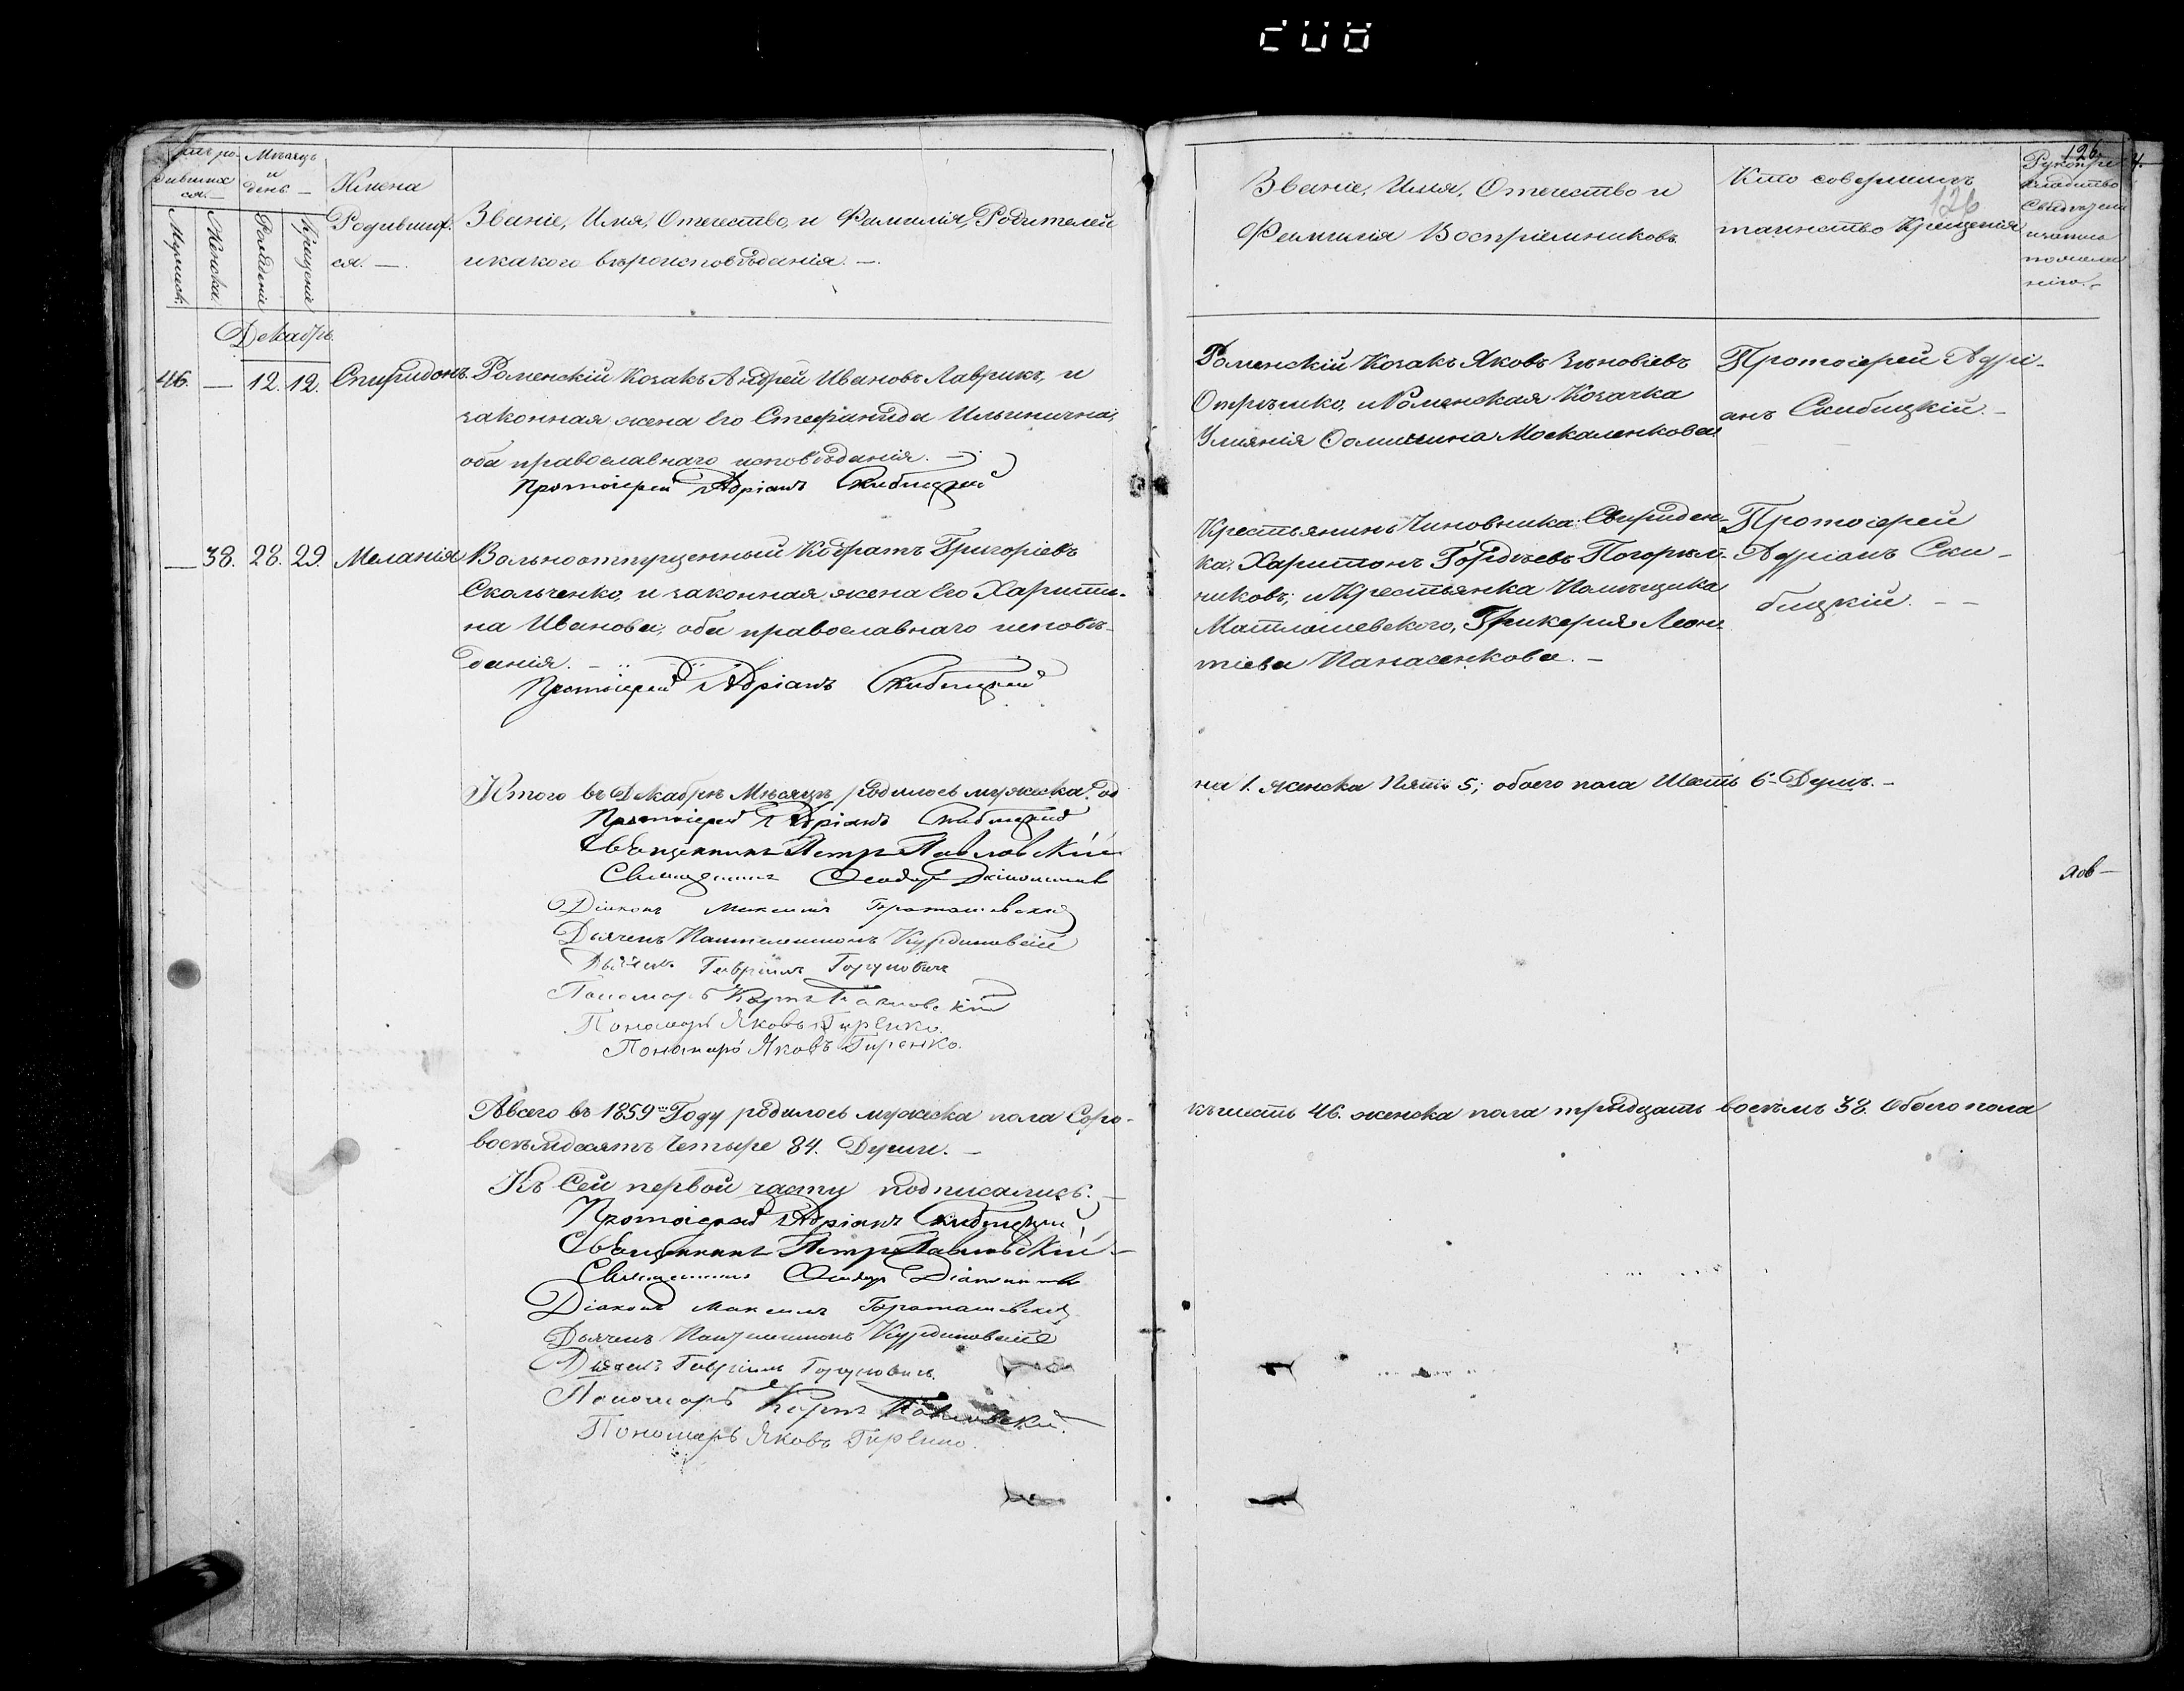 208
126
126
Мѣсяцъ
и
день
Имена
Родивших
ся. —
Мужеск.
Женска.
Рожденіе
Крещеніе
Званіе, Имя, Отечество, и Фамилія, Родителей
и какого вѣроисповѣданія. —
Званіе, Имя, Отечество и
Фамилія Воспріемниковъ
Кто совершилъ
таинство Крещенія
Декабрь.
46. — 12. 12. Спиридонъ.
Роменскій Козакъ Андрей Ивановъ Лаврикъ, и
законная жена Его Стефанида Ильинична,
оба православнаго исповѣданія. —
Протоіерей Адріанъ Скибицкій
Роменскій Козакъ Яковъ Зѣновіевъ
и Роменская Козачка
Москаленкова.
Протоіерей Адрі-
анъ Скибицкій. —
— 38. 28. 29. Меланія
Вольноотпущенный Кодратъ Григоріевъ
Скальченко, и законная жена Его Харити-
на Иванова, оба православнаго исповѣ-
данія. —
Протоіерей Адріанъ Скибицкій
Крестьянинъ Чиновника Свириден-
ка, Харитонъ Гордѣевъ Погорѣл-
чиковъ; и Крестьянка Помѣщика
Гликерия Леон
тіева Панасенкова. —
Протоіерей
Адріанъ Ски-
бицкій. —
Итого въ Декабрѣ Мѣсяцѣ родилось мужеска од
на 1. женска Пять 5; обоего пола Шесть 6 Душъ. —
Протоіерей Адріанъ Скибицкій
Священникъ Петръ Павловскій
Священникъ Ѳеодоръ
Діаконъ Максимъ
Дьячекъ Пантелеимонъ Курдиновскій
Дьячекъ Гавріилъ
Пономарь Карпъ Павловскій
Пономарь Яковъ Гиренко.
Пономарь Яковъ Гиренко.
А всего въ 1859 Году родилось мужеска пола Соро-
къ шесть 46. женска пола тридцать восемъ 38. Обоего пола
восемьдесятъ Четыре 84. Души. —
Къ Сей первой части подписались. —
Протоіерей Адріанъ Скибицкій
Священникъ Петръ Павловскій
Священникъ Ѳеодоръ
Діаконъ Максимъ
Дьячекъ Пантелеимонъ Курдиновскій
Дьячекъ Гавріилъ
Пономарь Карпъ Павловскій.
Пономарь Яковъ Гиренко.